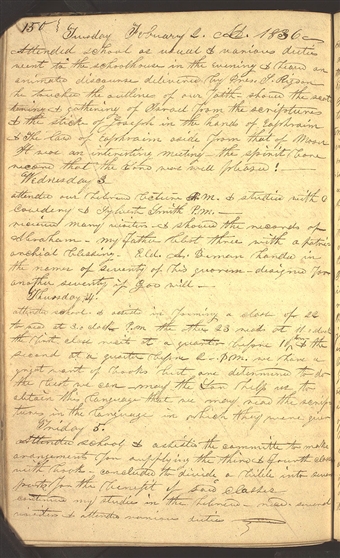 150
Tuesday February 2. AD. 1836
Attended school as usual & various duties
went to the schoolhouse in the evening & heard an
animated discourse delivered by Pres. S. Rigdon
he touched the outlines of our faith showed the scat
& gathering of Israel from the scriptures
& the stick of Joseph in the hands of Ephraim
& the law of Ephraim aside from that of Moses
It was an interesting meeting the spirit bore
record that the Lord was well pleased!
Wednesday 3
attended our hebrew lecture A.M. & studied with O
Cowdery & Sylvester Smith P.M.
received many visitors & showed the records of
Abraham - my father blest three with a patri
archial blessing - Eld. handed in
the names of seventy of his quorum - designed for
another seventy of God will -
Thursday 4
attended school & assisted in forming a class of 22
to read at 3 o clock P.M. the other 23 reads at 11 o clock
the first class recits at a quarter before 10 & the
second at a quarter before 2. P.M. we have a
great want of books but are determined to do
the best we can - may the Lord help us to
obtain this language that we may read the scrip
tures in the language in which they were given
Friday 5
Attended school & assisted the committe to make
arangements for supplying the third & fourth classes
with books - concluded to divide a bible into several
parts for the benefit of said classes
continued my studies in the hebrew - several
visitors & attended various duties